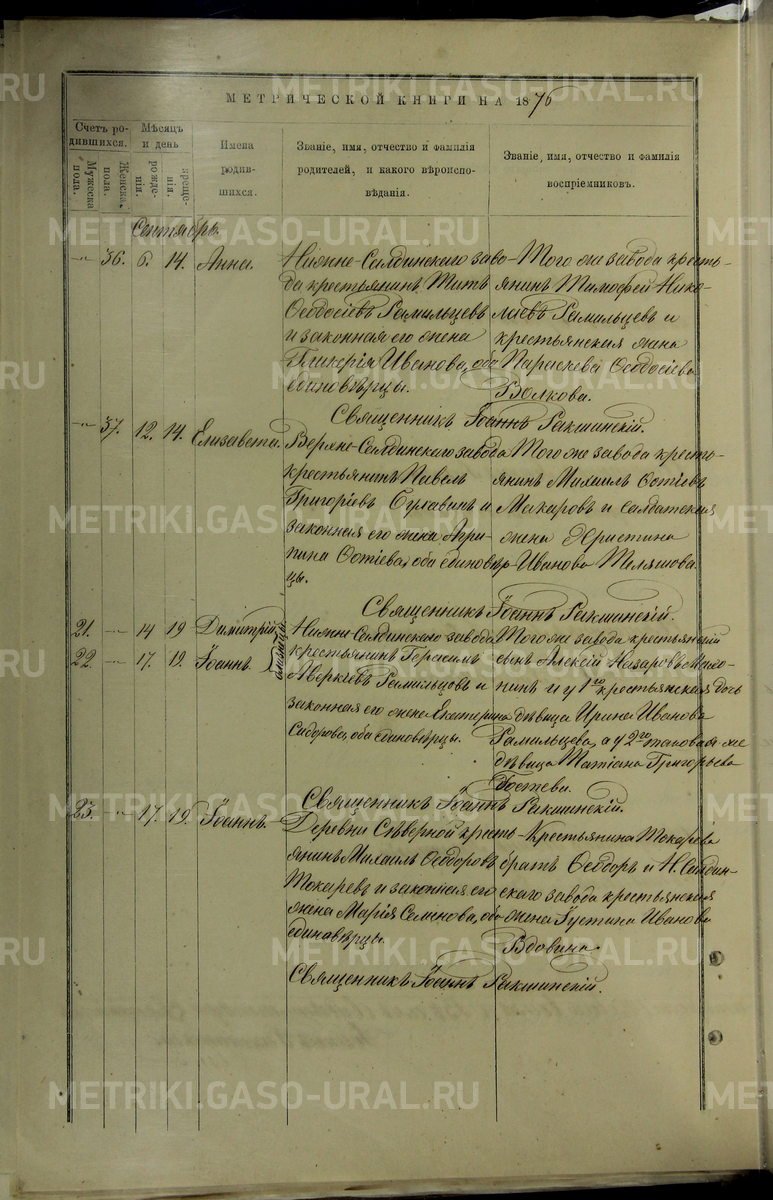 МЕТРИЧЕСКОЙ КНИГИ НА 1876
Счетъ ро-
дившихся.
Мужеска
пола.
Женска
пола.
Мѣсяцъ
и день
рожде-
нія.
креще-
нія.
Имена
родив-
шихся.
Званіе, имя, отчество и фамилія
родителей, и какого вѣроиспо-
вѣданія.
Званіе, имя, отчество и фамилія
воспріемниковъ.
Сентябрь.
36. 6. 14. Анна.
Нижне-Салдинскаго заво-
да крестьянинъ Титъ
Ѳеодосіевъ Рамильцевъ
и законная его жена
Гликерія Иванова, оба
единовѣрцы.
Того же завода кресть-
янинъ Тимофей Нико-
лаевъ Рамильцевъ и
крестьянская жена
Параскева Ѳеодосіева
Волкова.
Священникъ Іоаннъ
37. 12. 14. Елизавета.
Верхне-Салдинскаго завода
крестьянинъ Павелъ
Григоріевъ и
законная его жена Агри-
пина Фотіева, оба единовѣр-
цы.
Того же завода кресть-
янинъ Михаилъ Фотіевъ
Макаровъ и салдатская
жена Христина
Иванова
Священникъ Іоаннъ
21. 14 19 Димитрій
22. 17. 19. Іоаннъ
близнецы
Нижне-Салдинскаго завода
крестьянинъ Герасимъ
Аверкіевъ Рамильцовъ и
законная его жена Екатерина
Сидорова, оба единовѣрцы.
Того же завода крестьянскій
сынъ Алексій Назаровъ
и у 1го крестьянская дочь
дѣвица Ирина Иванова
Рамильцева, а у 2го таковая же
дѣвица Татіана Григорьева
Гостева.
Священникъ Іоаннъ
23. 17. 19. Іоаннъ.
Деревни Сѣверной кресть-
янинъ Михаилъ Ѳеодоровъ
Токаревъ и законная его
жена Марія Семенова, оба
единовѣрцы.
Крестьянина Токарева
братъ Ѳеодоръ и Н. Салдин-
скаго завода крестьянская
жена Густина Иванова
Вдовина.
Священникъ Іоаннъ
METRIKI.GASO-URAL.RU